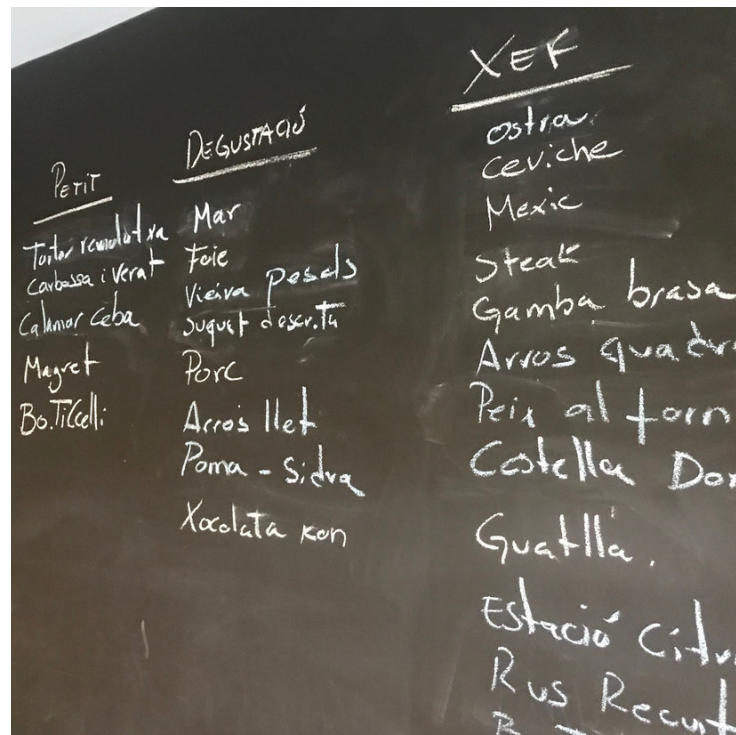 PETIT
Tartar remolatxa
carbassa i verat
Calamar ceba
Magret
Bo.TiCelli
DEGUSTACIÓ
Mar
Foie
Vieira pesols
suquet
Porc
Arros llet
Poma - Sidra
Xocolata
XEF
ostra
ceviche
Mexic
Steak
Gamba brasa
Arros
Peix al forn
Costella
Guatlla.
Estació
Rus